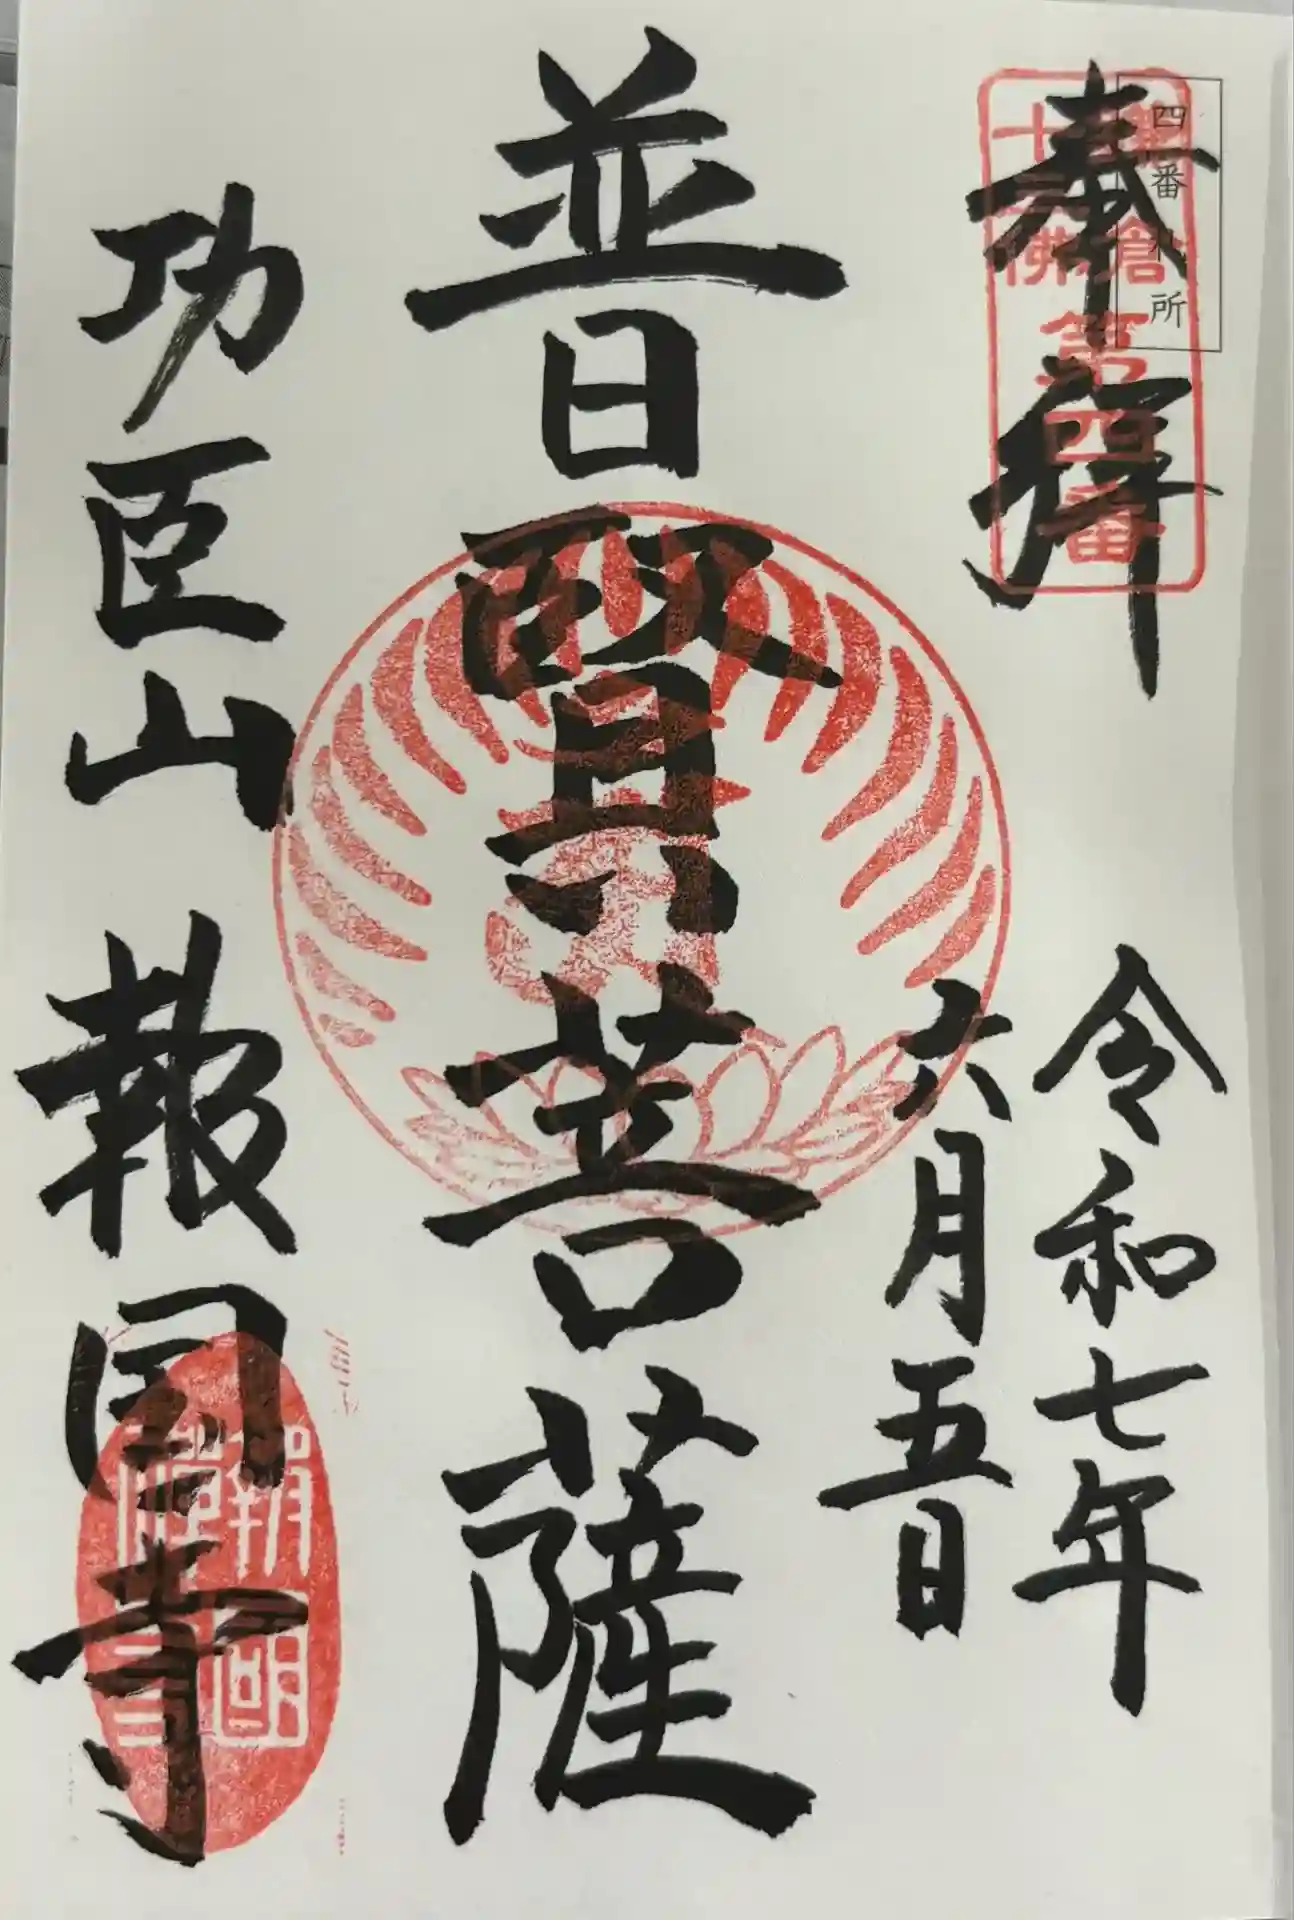 四番札所
鎌倉
十三佛
第四番
奉拝
令和七年
六月五日
普賢菩薩
功臣山 報国寺
報國